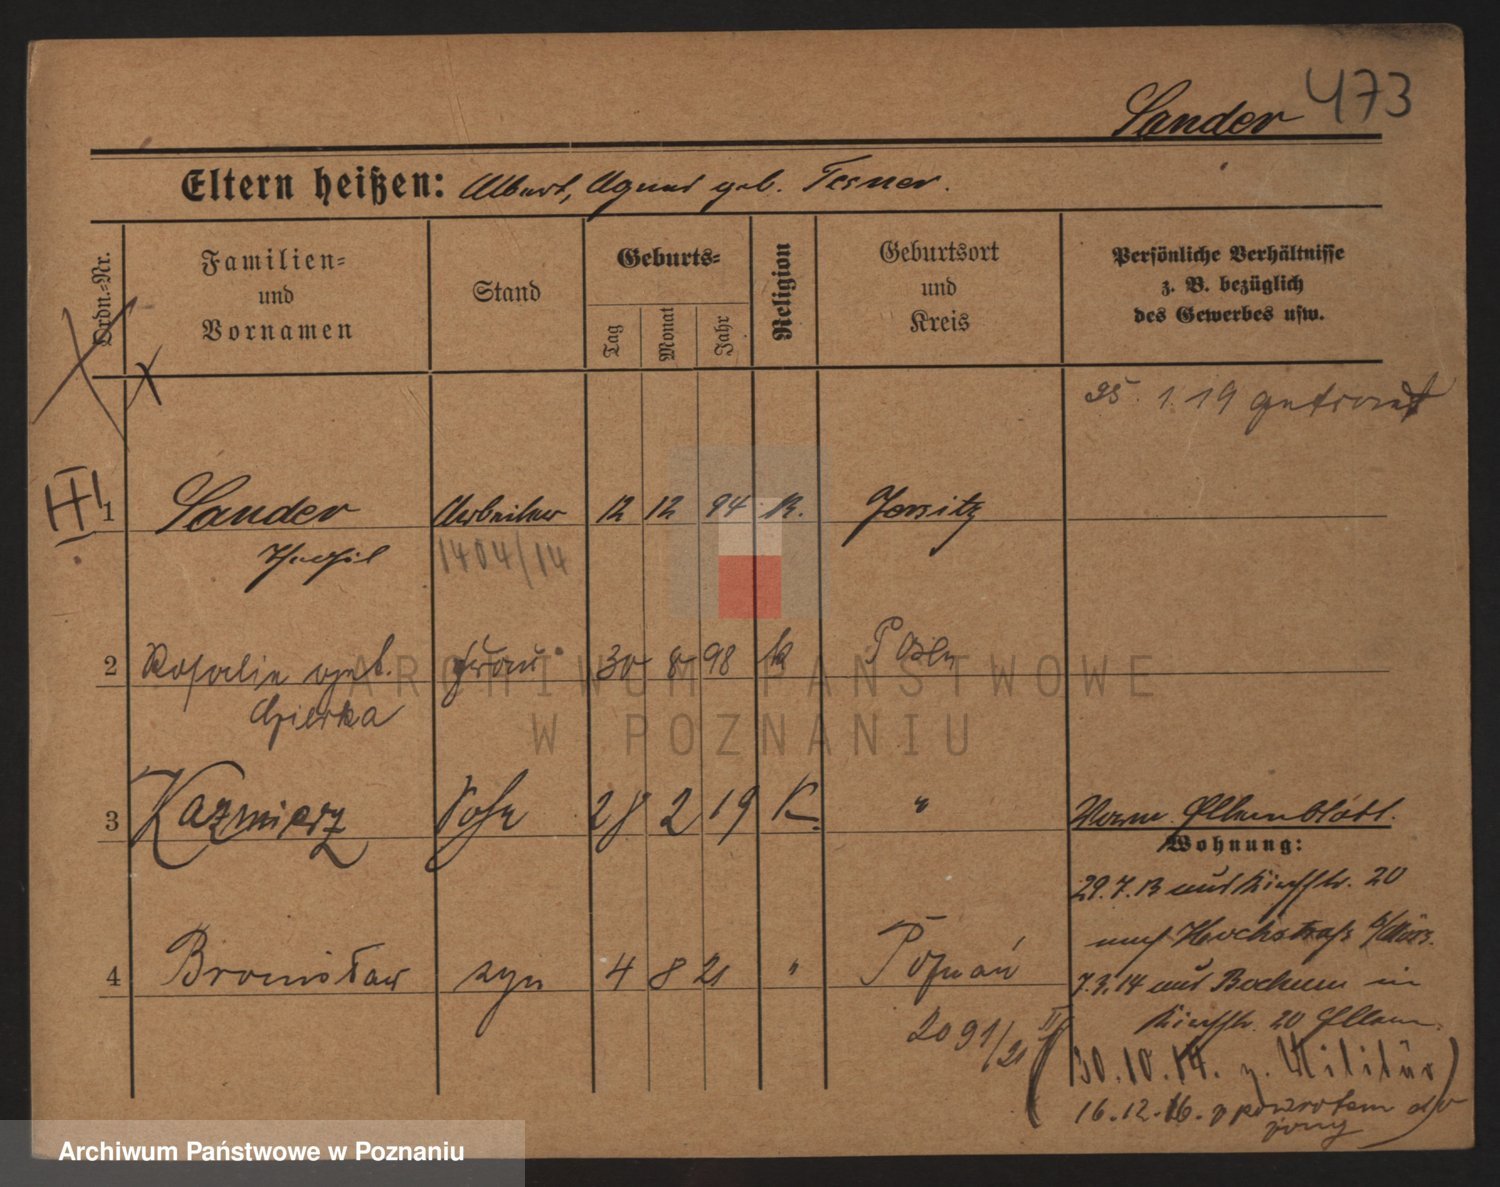 473
Sander
Eltern heißen: Albert, Agnes geb. Tesner.
Ordn.-Nr.
Familien- und Vornamen
Stand
Geburts-
Tag
Monat
Jahr
Religion
Geburtsort und Kreis
Persönliche Verhältnisse
z. B. bezüglich
des Gewerbes usw.
25. 1. 19 getraut
III
1 Sander Arbeiter 12 12 94 K. Jersitz
1404/14
2 Rosalie geb. Frau 30 8 98 k Posen
Gierka
3 Kazmierz Sohn 28 2 19 K. "
Elternblatt.
Wohnung:
29.7.13 aus Kirchstr. 20
nach Hochstraße
4 Bronisław syn 4 8 21 " Poznań
7.9.14 aus Bochum in
Kirchstr. 20 Eltern.
2091/21 II
(30.10.14. z. Militär)
16.12.16. z powrotem do
żony
ARCHIWUM PAŃSTWOWE
W POZNANIU
Archiwum Państwowe w Poznaniu